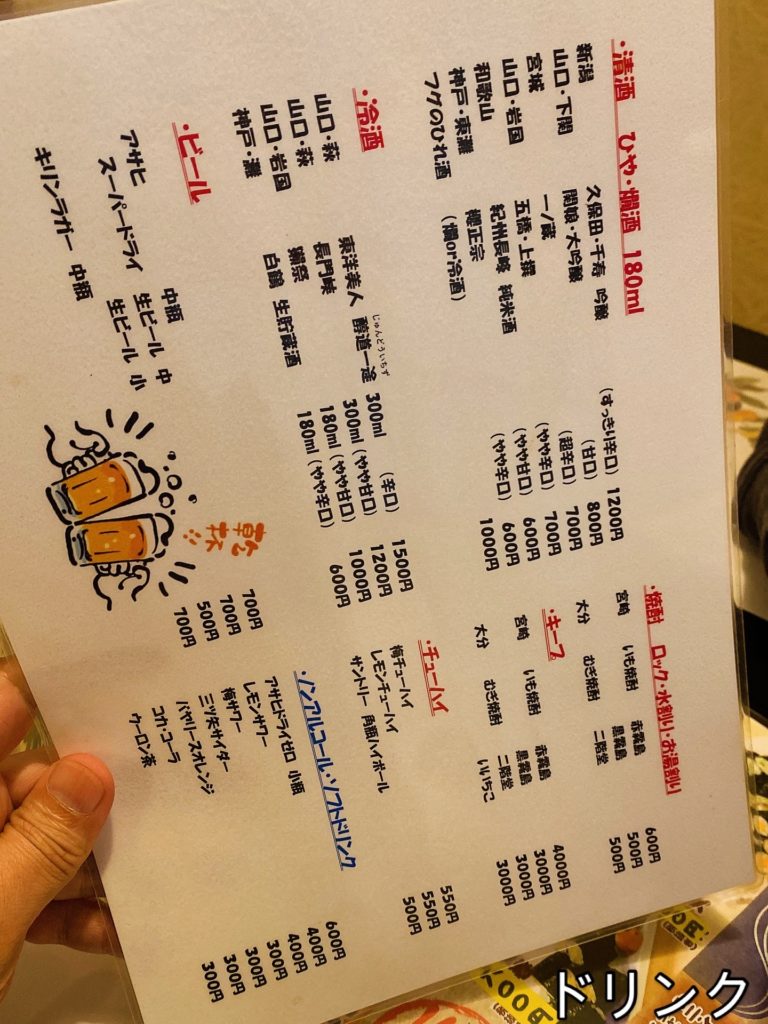 ・清酒 ひや・燗酒 180ml
新潟 久保田・千寿 吟醸 (すっきり辛口) 1200円
山口・下関 関娘・大吟醸 (甘口) 800円
宮城 一ノ蔵 (超辛口) 700円
山口・岩国 五橋・上撰 (やや辛口) 700円
和歌山 紀州長峰 純米酒 (やや甘口) 600円
神戸・東灘 櫻正宗 (やや辛口) 600円
フグのひれ酒 (燗or冷酒) 1000円
・冷酒
じゅんどういちず
山口・萩 東洋美人 醇道一途 300ml (辛口) 1500円
山口・萩 長門峡 300ml (やや甘口) 1200円
山口・岩国 獺祭 180ml (やや甘口) 1000円
神戸・灘 白鶴 生貯蔵酒 180ml (やや辛口) 600円
・ビール
アサヒ 中瓶 700円
スーパードライ 生ビール 中 700円
生ビール 小 500円
キリンラガー 中瓶 700円
乾杯!!
・焼酎 ロック・水割り・お湯割り
宮崎 いも焼酎 赤霧島 600円
黒霧島 500円
大分 むぎ焼酎 二階堂 500円
・キープ
宮崎 いも焼酎 赤霧島 4000円
黒霧島 3000円
大分 むぎ焼酎 二階堂 3000円
いいちこ 3000円
・チューハイ
梅チューハイ 550円
レモンチューハイ 550円
サントリー 角瓶ハイボール 500円
・ノンアルコール・ソフトドリンク
アサヒドライゼロ 小瓶 600円
レモンサワー 400円
梅サワー 400円
三ツ矢サイダー 300円
バヤリースオレンジ 300円
コカ・コーラ 300円
ウーロン茶 300円
ドリンク